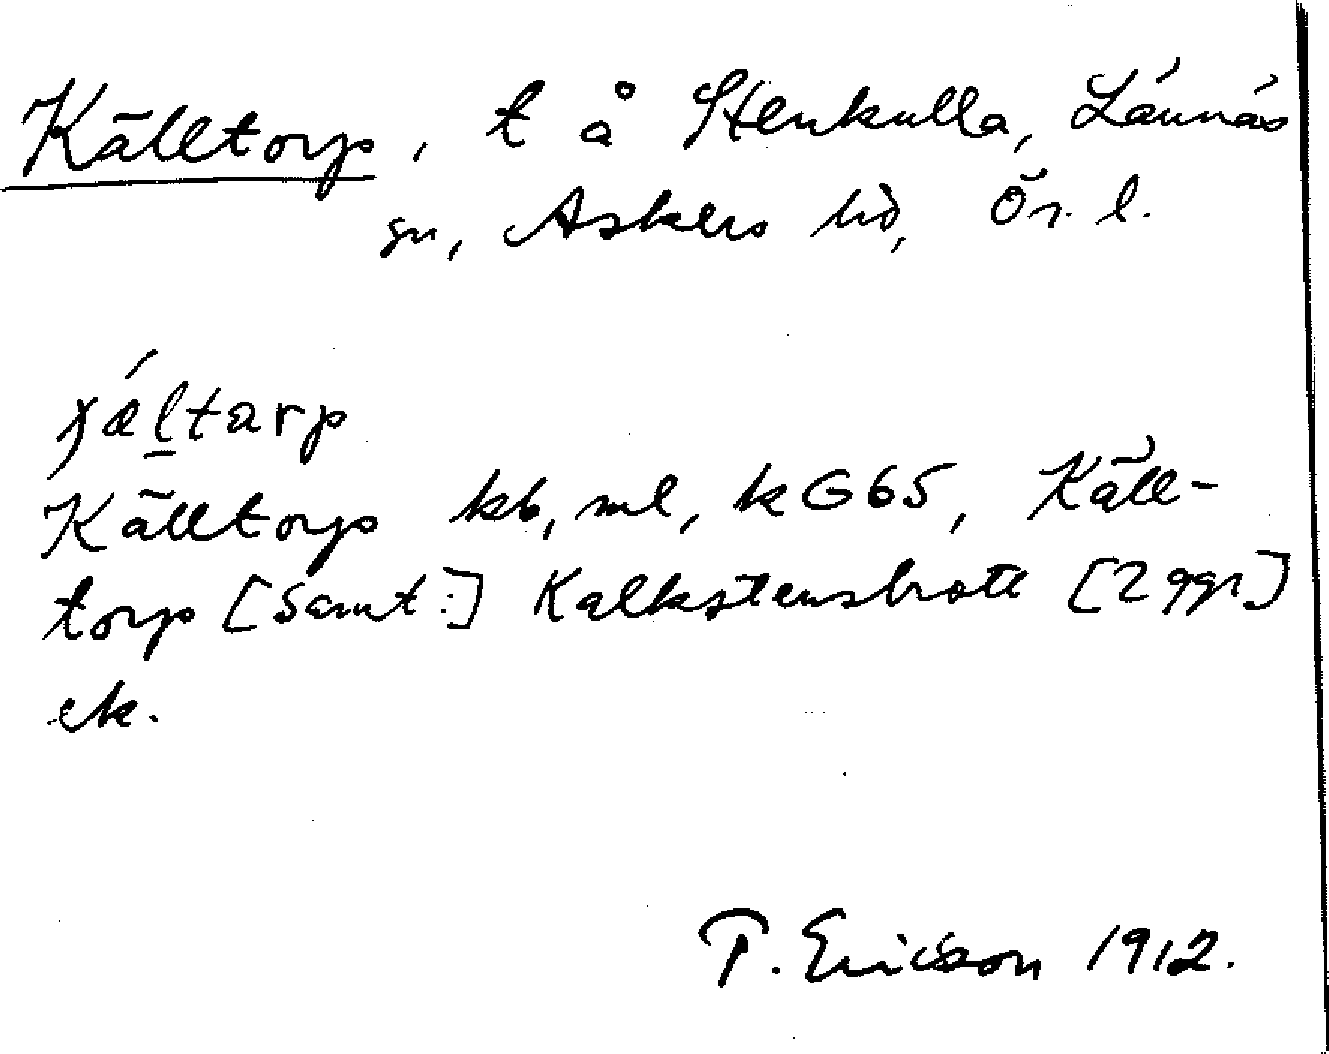 Källtorp, t å Stenkulla, Lännäs
sn, Askers hd, Ör. l.
Källtorp kb, ml, k G65, Käll-
torp [Samt.:] Kalkstensbrott [2 ggr]
ek.
T. Ericson 1912.